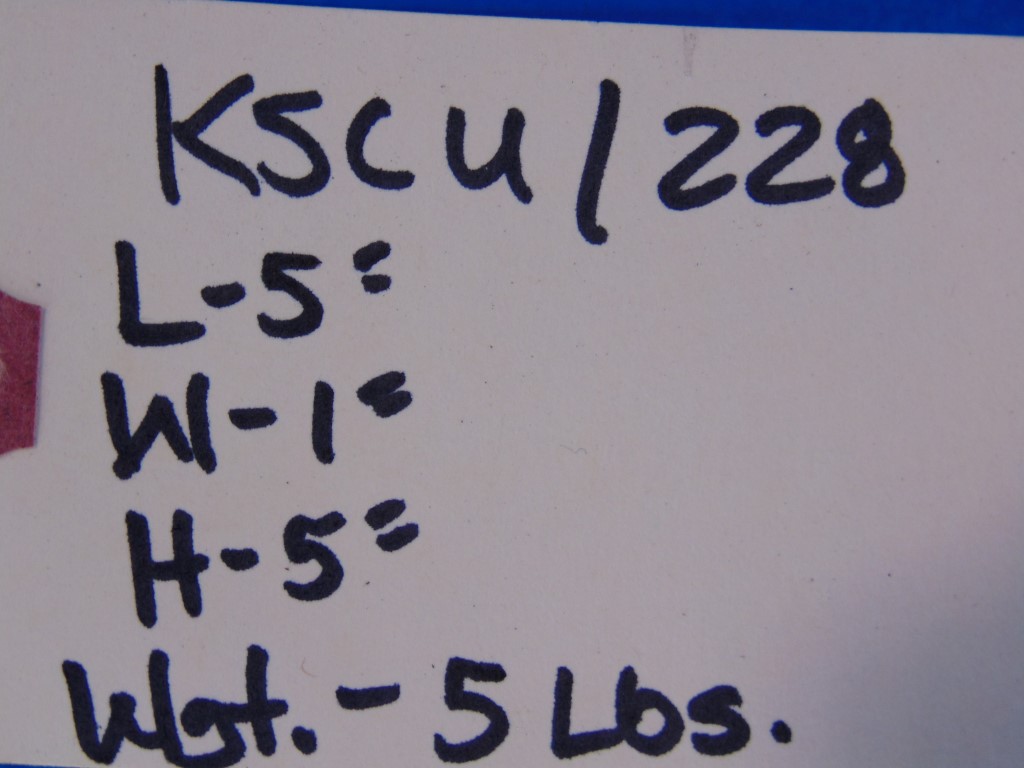 KSCU/228
L-5"
W-1"
H-5"
Wgt.-5 Lbs.